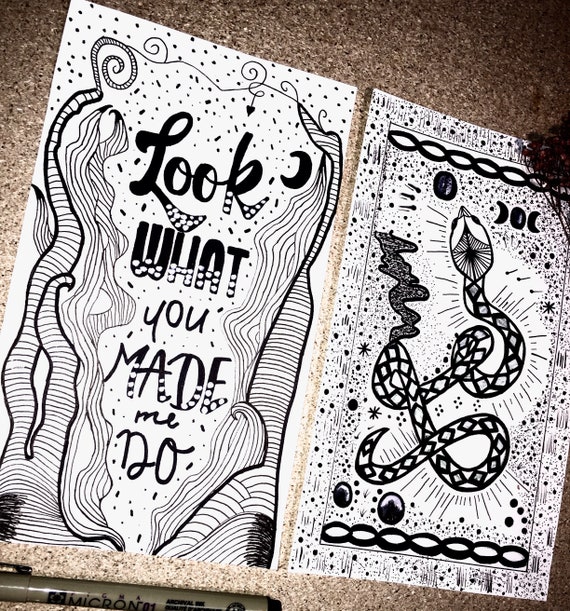 Look
WHAT
you
MADE
me
DO
MICRON 01
ARCHIVAL INK